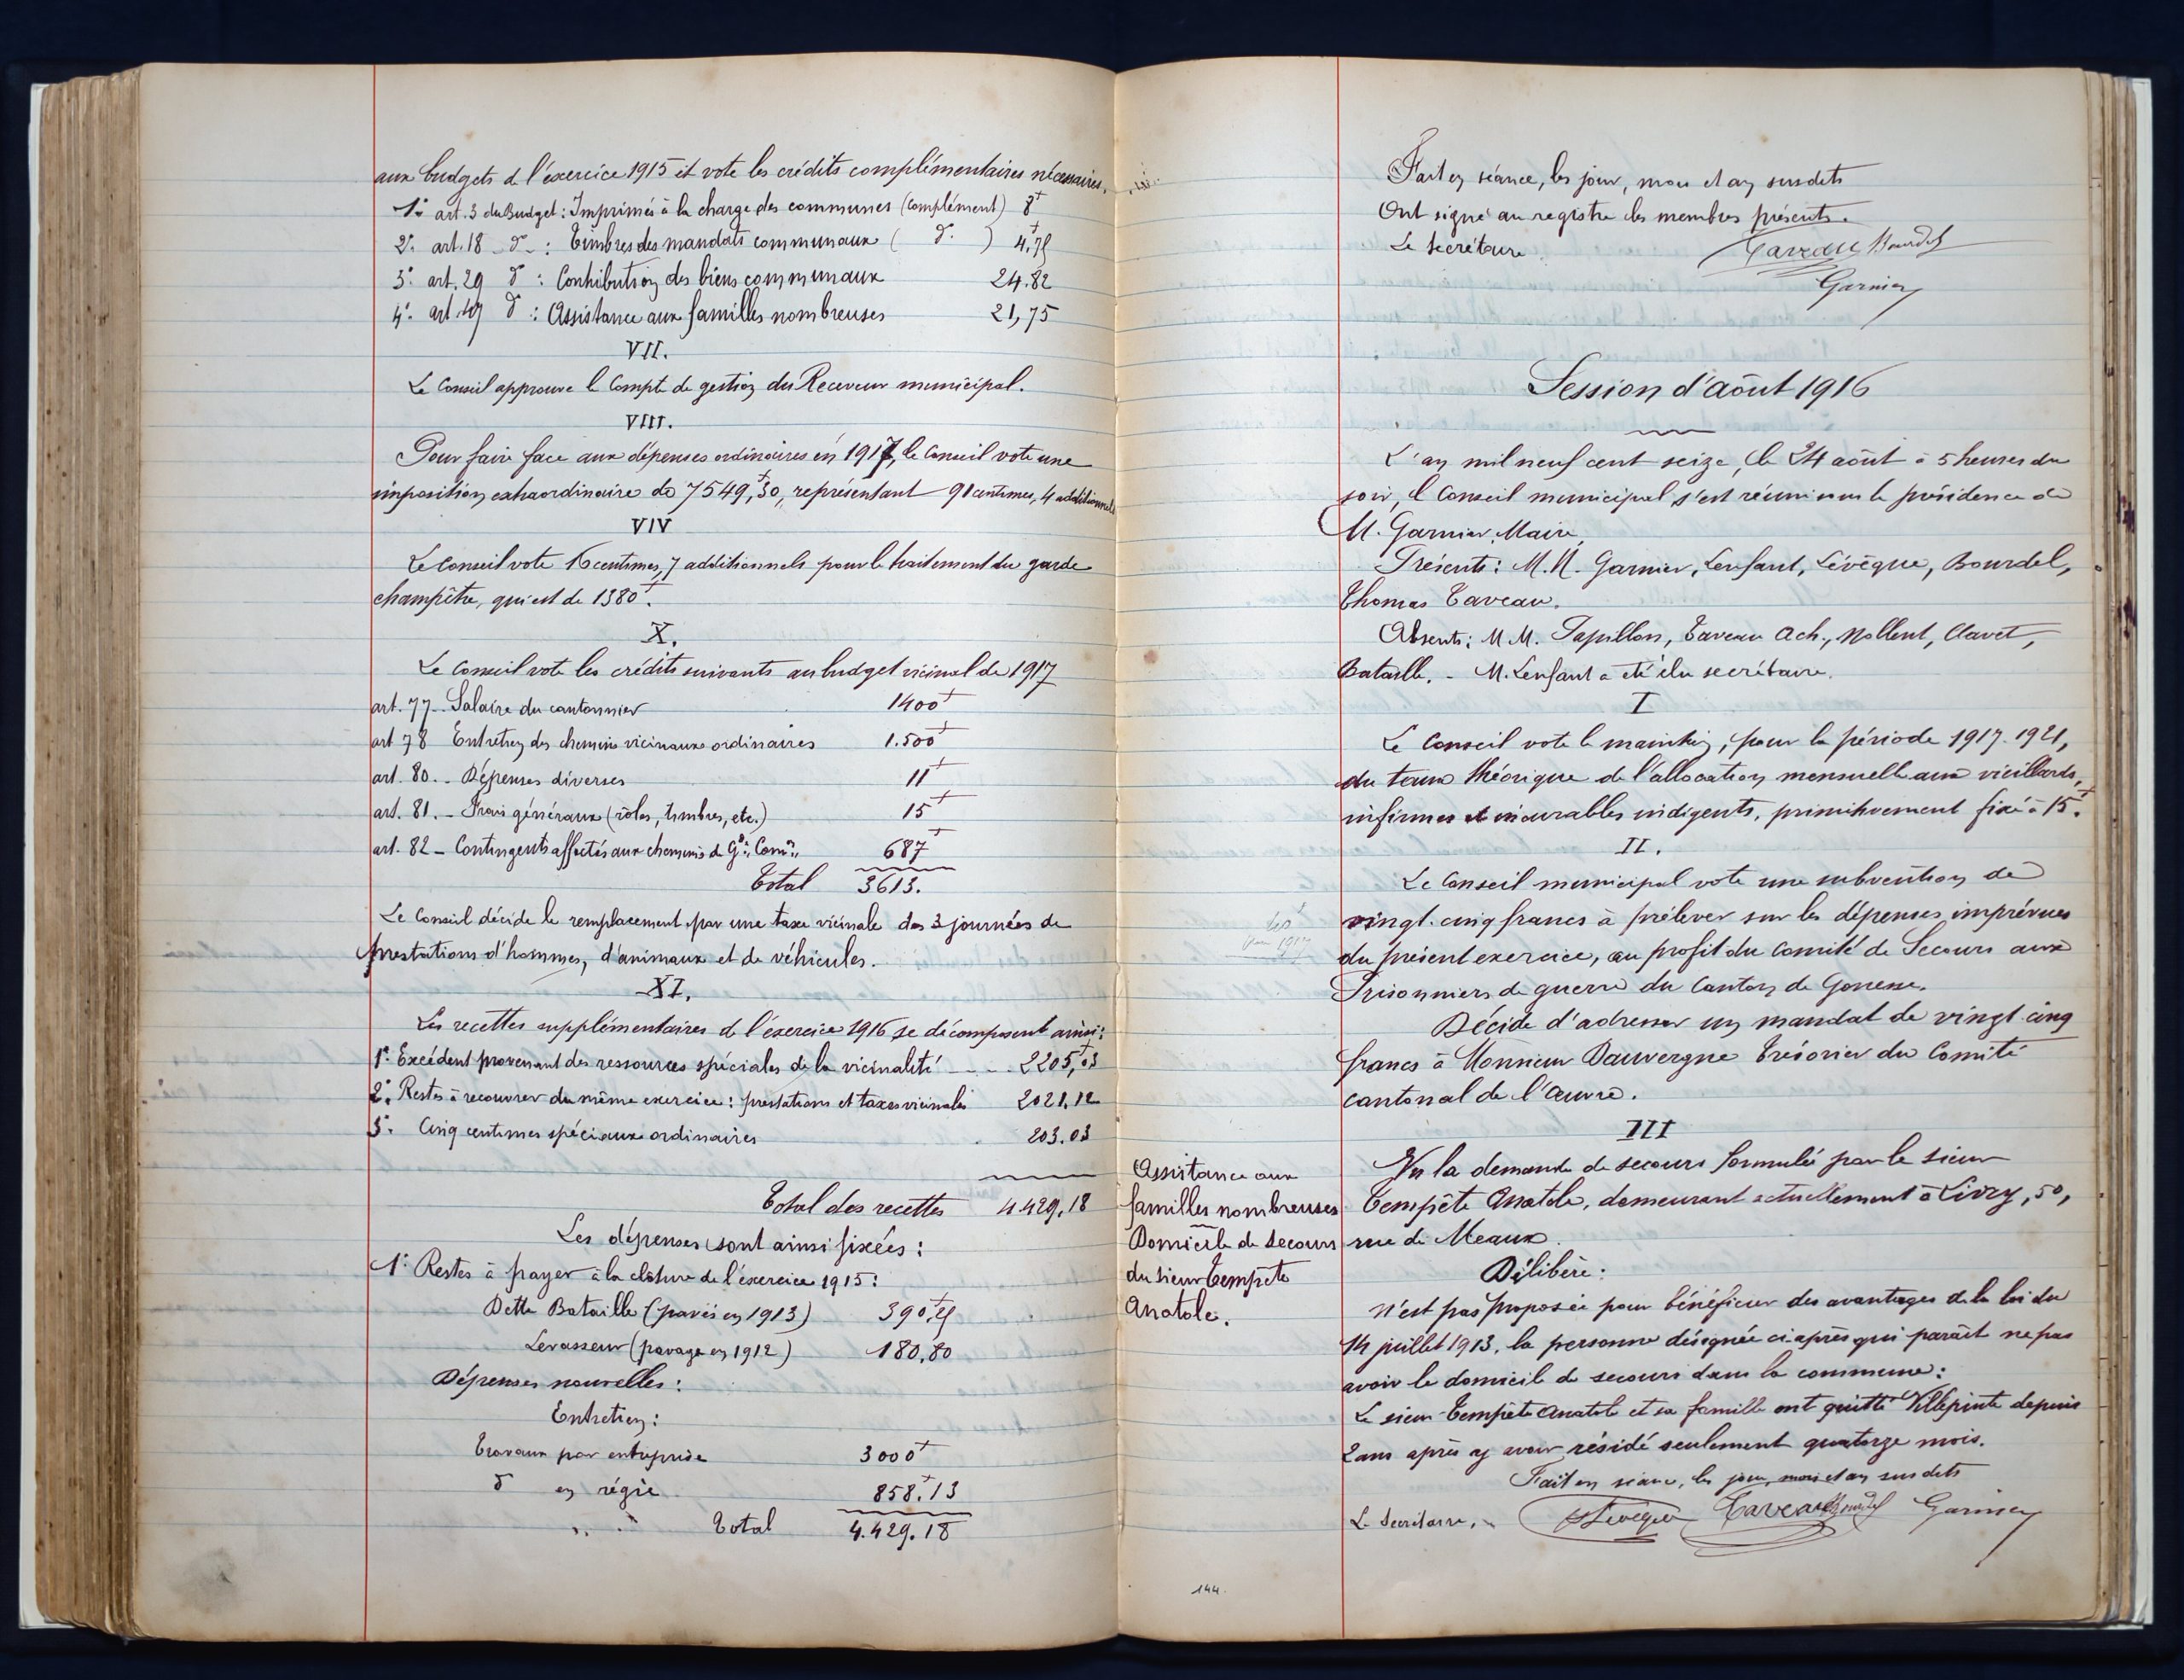 aux budgets de l'exercice 1915 et vote les crédits complémentaires nécessaires.
1° art. 3 du Budget : Imprimés à la charge des communes (complément) 8f
2° art. 18 _ d° _ : Timbres des mandats communaux ( d° ) 4f,75
3° art. 29 d° : Contribution des biens communaux 24.82
4° art. 49 d° : Assistance aux familles nombreuses 21,75
VII.
Le Conseil approuve le Compte de gestion du Receveur municipal.
VIII.
Pour faire face aux dépenses ordinaires en 1917, le Conseil vote une
imposition extraordinaire de 7549f,30, représentant 91 centimes, 4 additionnels
VIV
Le Conseil vote 16 centimes, 7 additionnels pour le traitement du garde
champêtre, qui est de 1380f.
X.
Le Conseil vote les crédits suivants au budget vicinal de 1917
art. 77 _ Salaire du cantonnier 1400f
art 78 Entretien des chemins vicinaux ordinaires 1.500f
art. 80. _ Dépenses diverses 11f
art. 81. _ Frais généraux (rôles, timbres, etc.) 15f
art. 82 _ Contingents affectés aux chemins de Gde Comon 687f
Total 3613.
Le Conseil décide le remplacement par une taxe vicinale des 3 journées de
prestations d'hommes, d'animaux et de véhicules.
XI.
Les recettes supplémentaires de l'exercice 1916 se décomposent ainsi :
1° Excédent provenant des ressources spéciales de la vicinalité _ _ 2205f,03
2° Restes à recouvrer du même exercice : prestations et taxes vicinales 2021.12
3° Cinq centimes spéciaux ordinaires 203.03
Total des recettes 4.429,18
Les dépenses sont ainsi fixées :
1° Restes à payer à la clôture de l'exercice 1915 :
Dette Bataille (pavés en 1913) 390f,25
Levasseur (pavage en 1912) 180,80
Dépenses nouvelles :
Entretien :
Travaux par entreprise 3000f
d° en régie 858f.13
Total 4.429.18
Fait en séance, les jour, mois et an susdits
Ont signé au registre les membres présents.
Le secrétaire Taveau Bourdel
Garnier
Session d'août 1916
L'an mil neuf cent seize, le 24 août à 5 heures du
soir, le Conseil municipal s'est réuni sous la présidence de
M. Garnier, Maire,
Présents : M.M. Garnier, Lenfant, Lévêque, Bourdel,
Thomas Taveau.
Absents : M.M. Papillon, Taveau Ach., Mollent, Clavet,
Bataille. _ M. Lenfant a été élu secrétaire.
I
Le Conseil vote le maintien, pour la période 1917-1921,
du taux théorique de l'allocation mensuelle aux vieillards,
infirmes et incurables indigents, primitivement fixé à 15f.
II.
Le Conseil municipal vote une subvention de
vingt-cinq francs à prélever sur les dépenses imprévues
1917
du présent exercice, au profit du Comité de Secours aux
Prisonniers de guerre du Canton de Gonesse.
Décide d'adresser un mandat de vingt cinq
francs à Monsieur Dauvergne Trésorier du Comité
cantonal de l'œuvre.
III
Assistance aux
familles nombreuses
Domicile de secours
du sieur Tempête
Anatole.
Vu la demande de secours formulée par le sieur
Tempête Anatole, demeurant actuellement à Livry, 50,
rue de Meaux.
Délibère :
N'est pas proposée pour bénéficier des avantages de la loi du
14 juillet 1913, la personne désignée ci après qui paraît ne pas
avoir le domicile de secours dans la commune :
Le sieur Tempête Anatole et sa famille ont quitté Villepinte depuis
2 ans après y avoir résidé seulement quatorze mois.
Fait en séance, les jour, mois et an susdits
Le Secrétaire, Lévêque Taveau Bourdel Garnier
144.